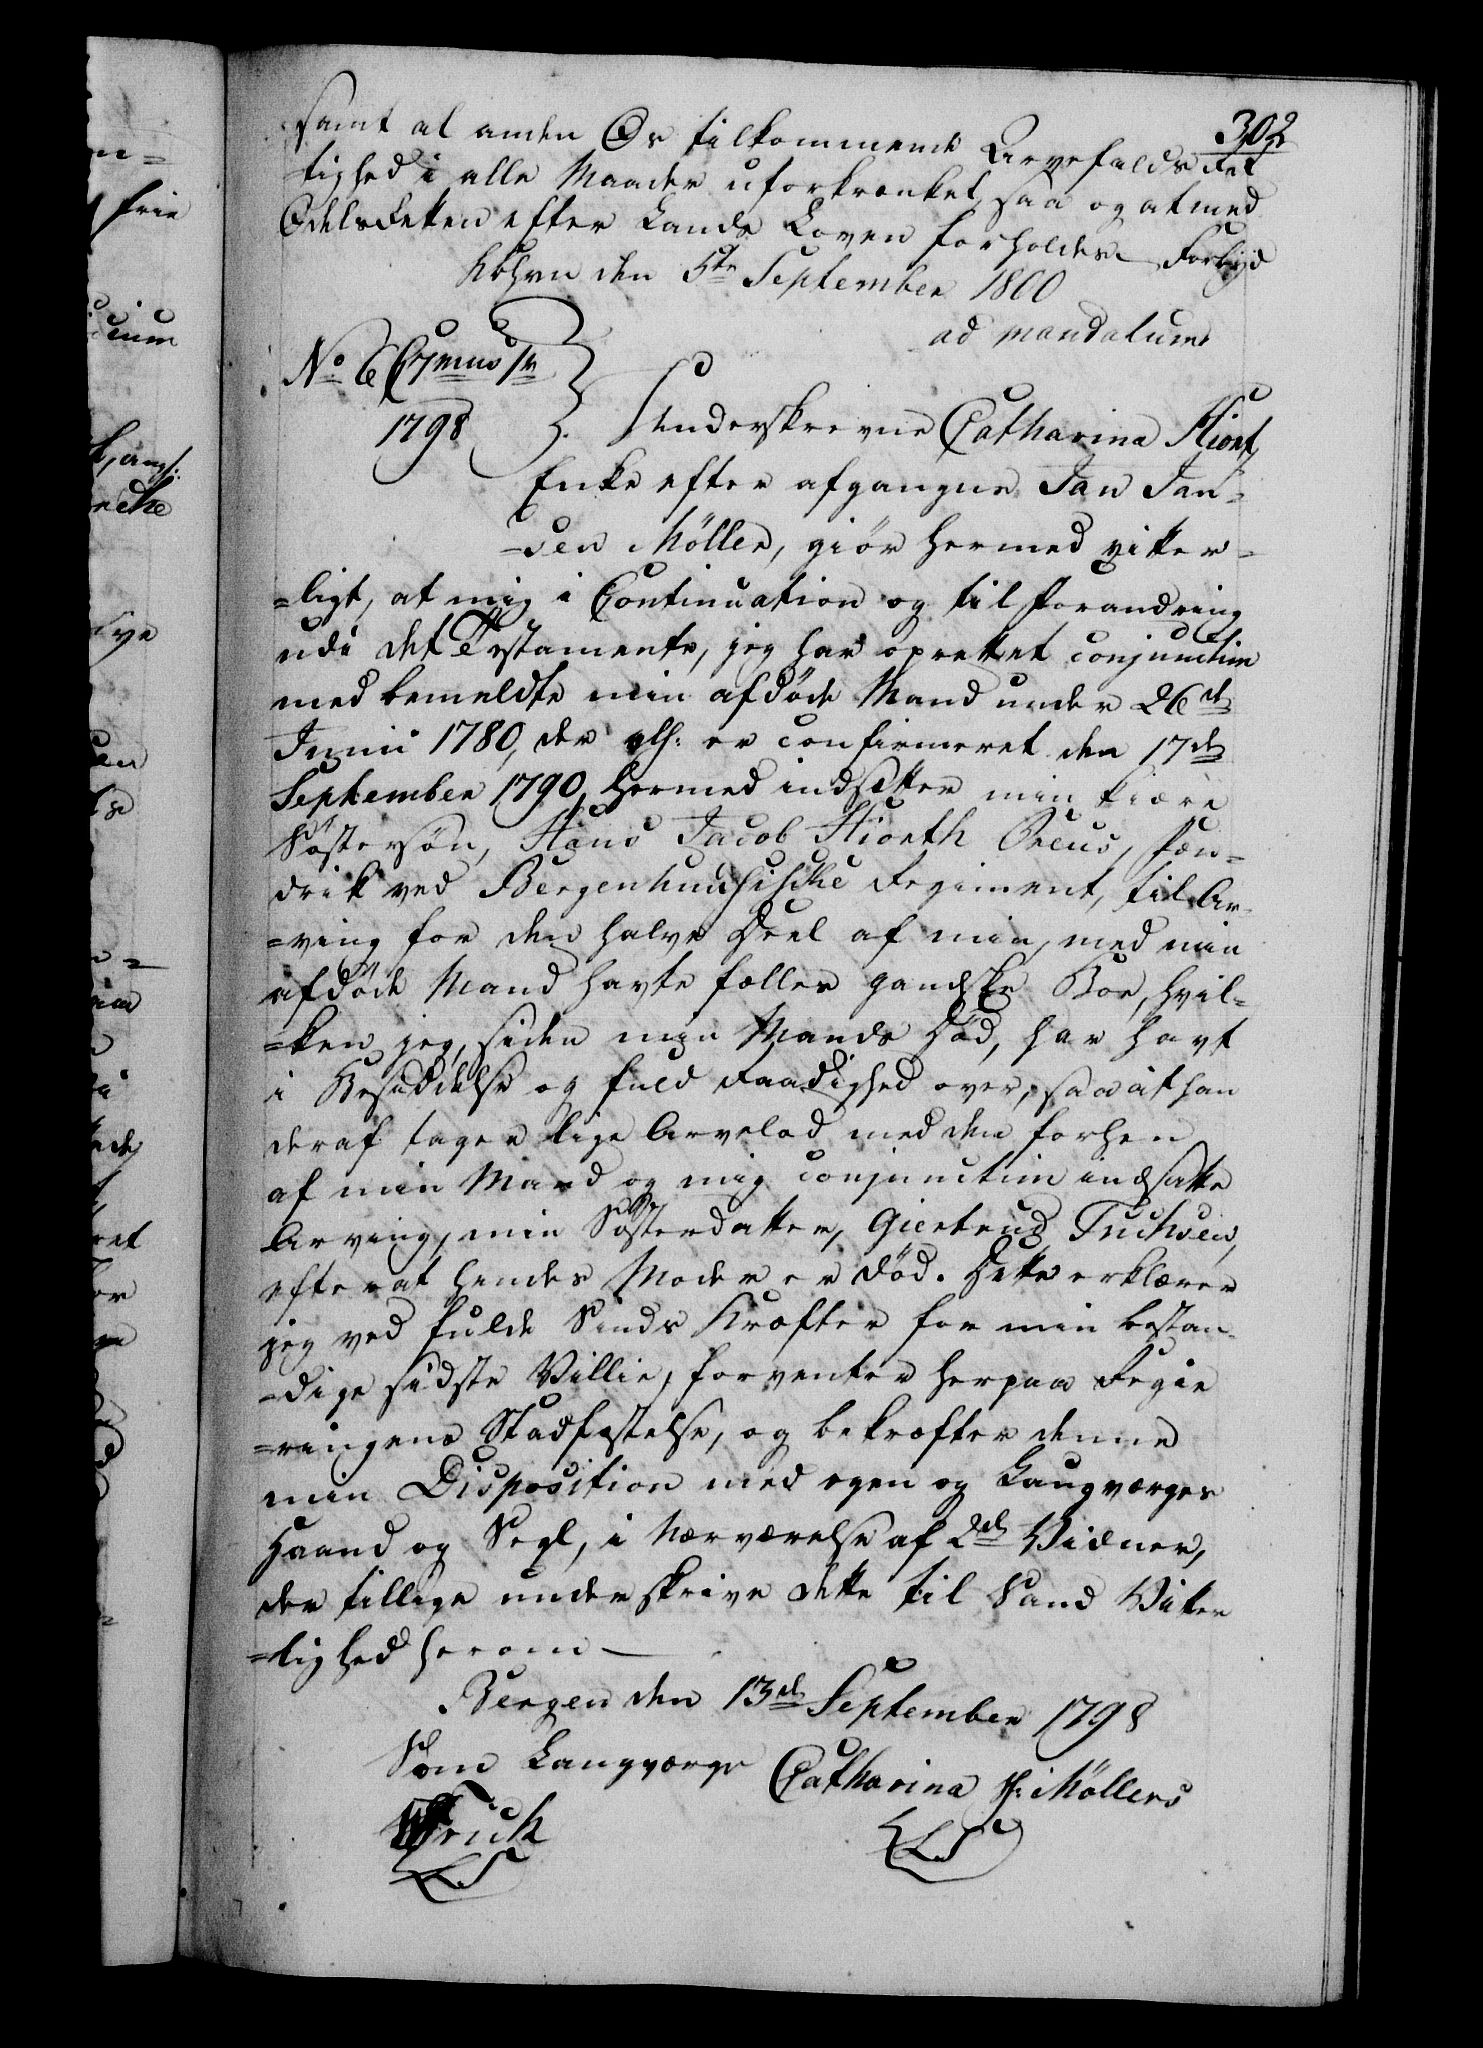 302
samt al anden Os tilkommende Arvefalds Ret
tighed i alle Maader uforkrænket, saa og at med
Odels Retten efter Lands Loven forholdes. Forbyd
Kbhvn den 5te September 1800
ad mandatum
No 6
1798
Underskrevne Catharina Hiort,
Enke efter afgangne Jan Jan-
-sen Möller, giør hermed vitter-
=ligt, at mig i Continuation og til Forandring
udi det Testamente, jeg har oprettet conjunctim
med bemeldte min afdøde Mand under 26de
Junii 1780, der alh: er confirmeret den 17de
September 1790, hermed indsætter min kiære
Søstersøn, Hans Jacob Hiorth Preus, Fæn-
drik ved Bergenhuusische Regiment, til Ar-
=ving for den halve Deel af min, med min
afdøde Mand havte fælles gandske Boe, hvil-
=ken jeg, siden min Mands Død, har havt
i Besiddelse og fuld Raadighed over, saa at han
deraf tager lige Arvelod med den forhen
af min Mand og mig conjunctim indsatte
Arving, min Søsterdatter, Giertrud Tuchsen,
efter at hendes Moder er død. Dette erklærer
jeg ved fulde Sinds Kræfter for min bestan-
-dige sidste Villie, forventer herpaa Regie
=ringens Stadfæstelse, og bekræfter denne
min Disposition med egen og Laugværges
Haand og Segl, i Nærværelse af 2de Vidner,
der tillige underskrive dette til Sand Vitter
=lighed herom
Bergen den 13de September 1798
Som Laugværge Catharina H: Möllers
Krück
L.S. L.S